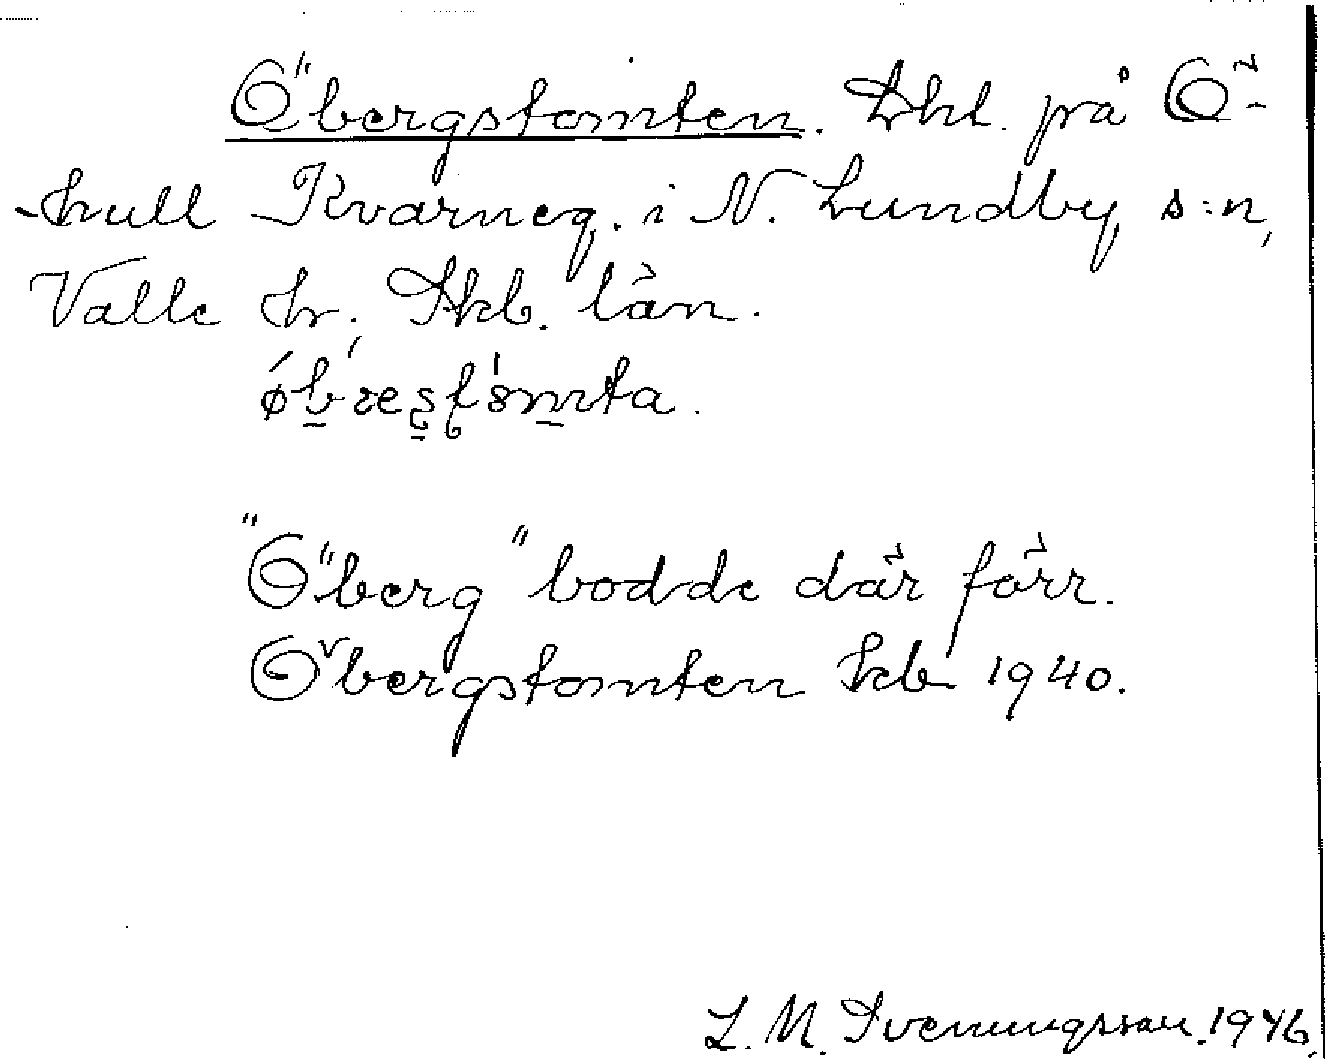 Öbergstomten. Lht. på Ö-
-hull Kvarneg. i N. Lundby s:n,
Valle hr; Skb. län.
"Öberg" bodde där förr.
Öbergstomten kb 1940.
L. M. Svenungsson. 1946.